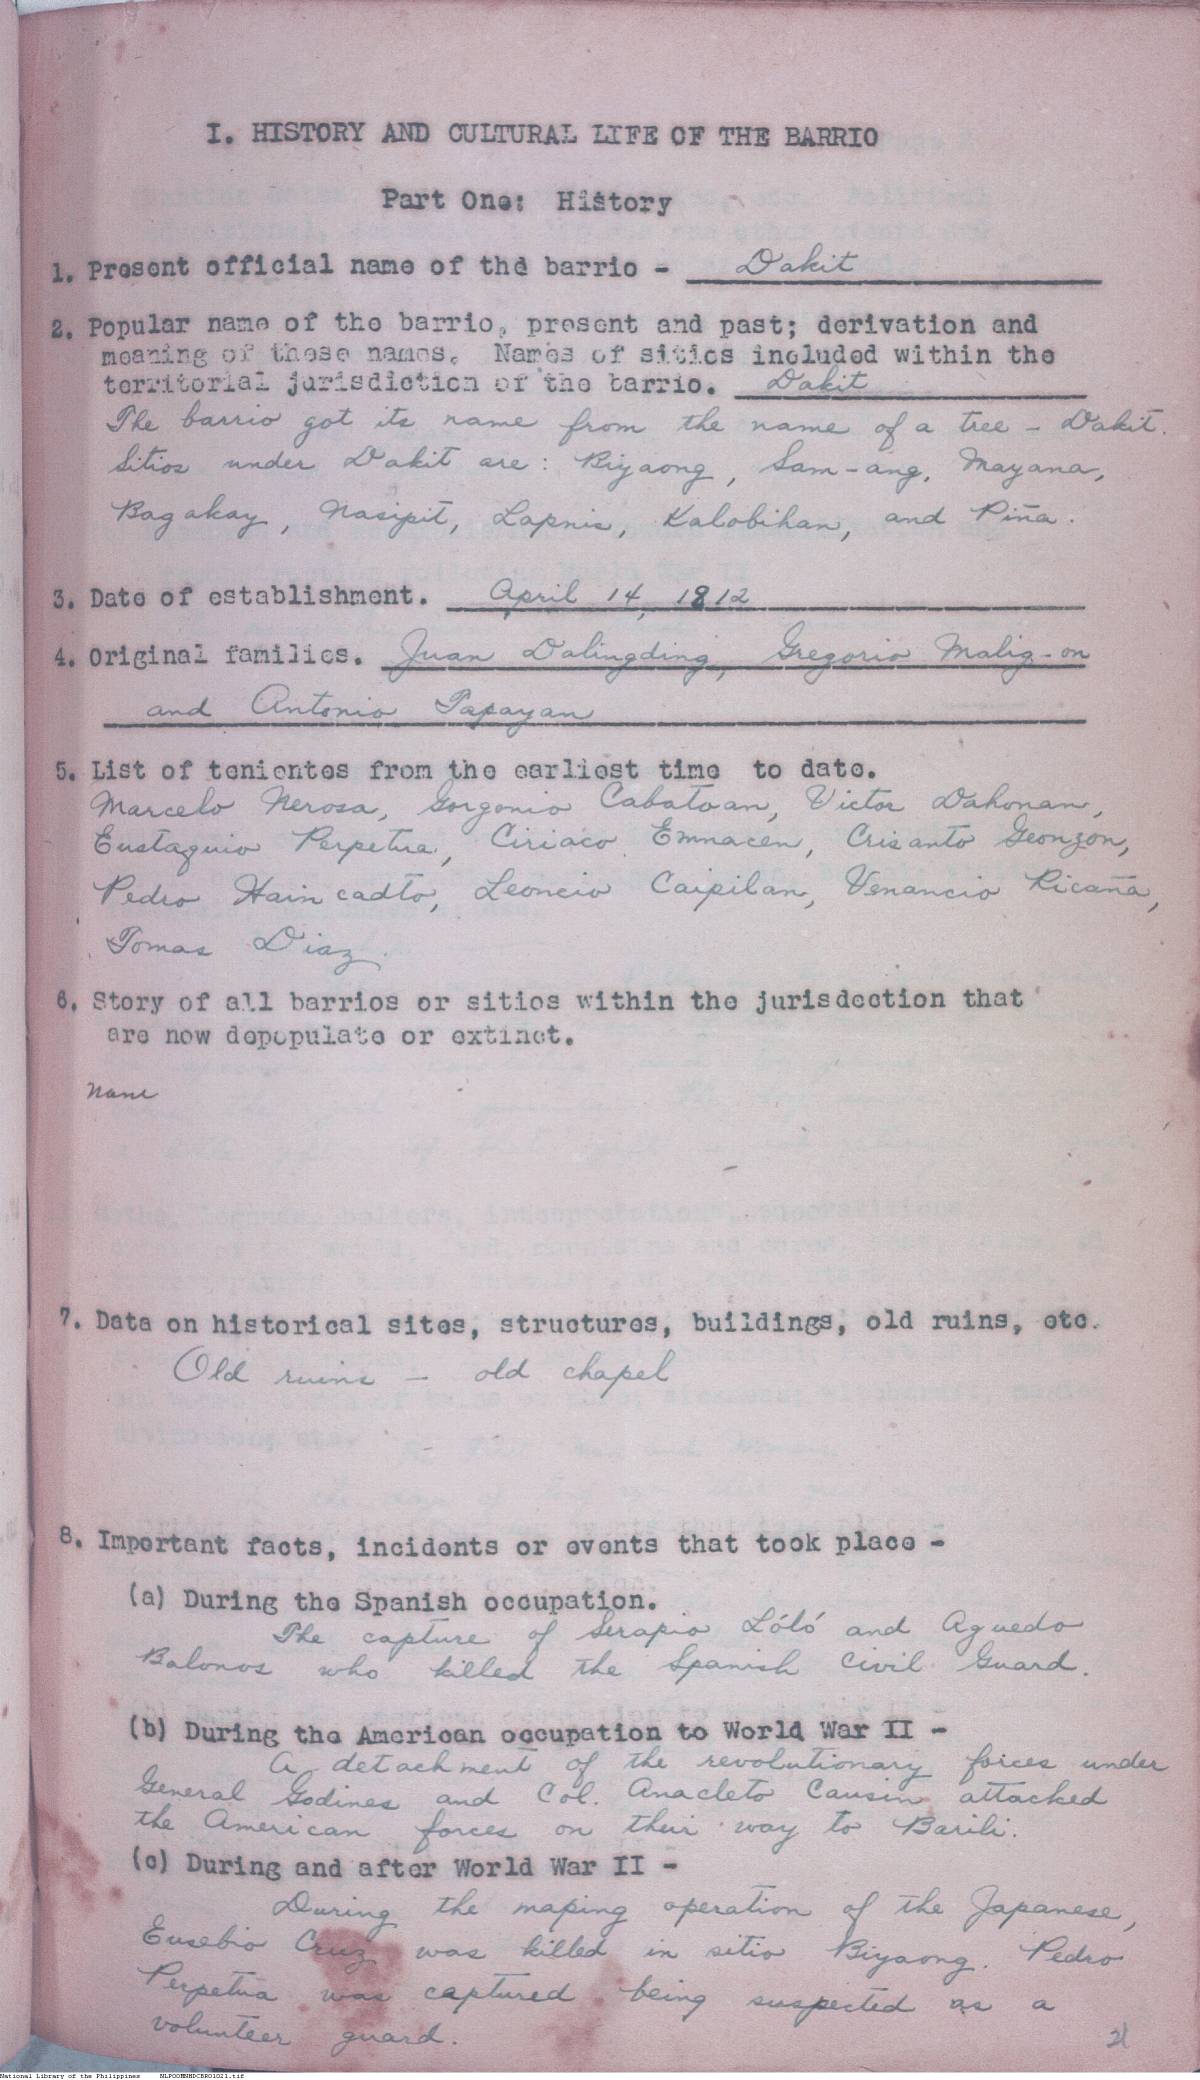 I. HISTORY AND CULTURAL LIFE OF THE BARRIO
Part One: History
1. Present official name of the barrio - Dakit
2. Popular name of the barrio, present and past; derivation and
meaning of these names. Names of sitios included within the
territorial jurisdiction of the barrio. Dakit
The barrio got its name from the name of a tree - Dakit.
Sitios under Dakit are: Biyaong, Sam-ang, Mayana,
Bagakay, Nasipit, Lapnis, Kalobihan, and Piña.
3. Date of establishment. April 14, 1812
4. Original families. Juan Dalingding, Gregorio Malig-on
and Antonio Tapayan
5. List of tenientes from the earliest time to date.
Marcelo Nerosa, Gorgonio Cabatoan, Victor Dahonan,
Eustaquio Perpetua, Ciriaco Emnacen, Crisanto Geonzon,
Pedro Haincadto, Leoncio Caipilan, Venancio Ricaña,
Tomas Diaz.
6. Story of all barrios or sitios within the jurisdection that
are now depopulate or extinct.
None
7. Data on historical sites, structures, buildings, old ruins, etc.
Old ruins - old chapel
8. Important facts, incidents or events that took place -
(a) During the Spanish occupation.
The capture of Serapio Lóló and Aguedo
Balonos who killed the Spanish Civil Guard.
(b) During the American occupation to World War II -
A detachment of the revolutionary forces under
General Godines and Col. Anacleto Causin attacked
the American forces on their way to Barili.
(c) During and after World War II -
During the maping operation of the Japanese,
Eusebio Cruz was killed in sitio Biyaong. Pedro
Perpetua was captured being suspected as a
volunteer guard.
21
National Library of the Philippines NLPOOMNHDCBRO1021.tif